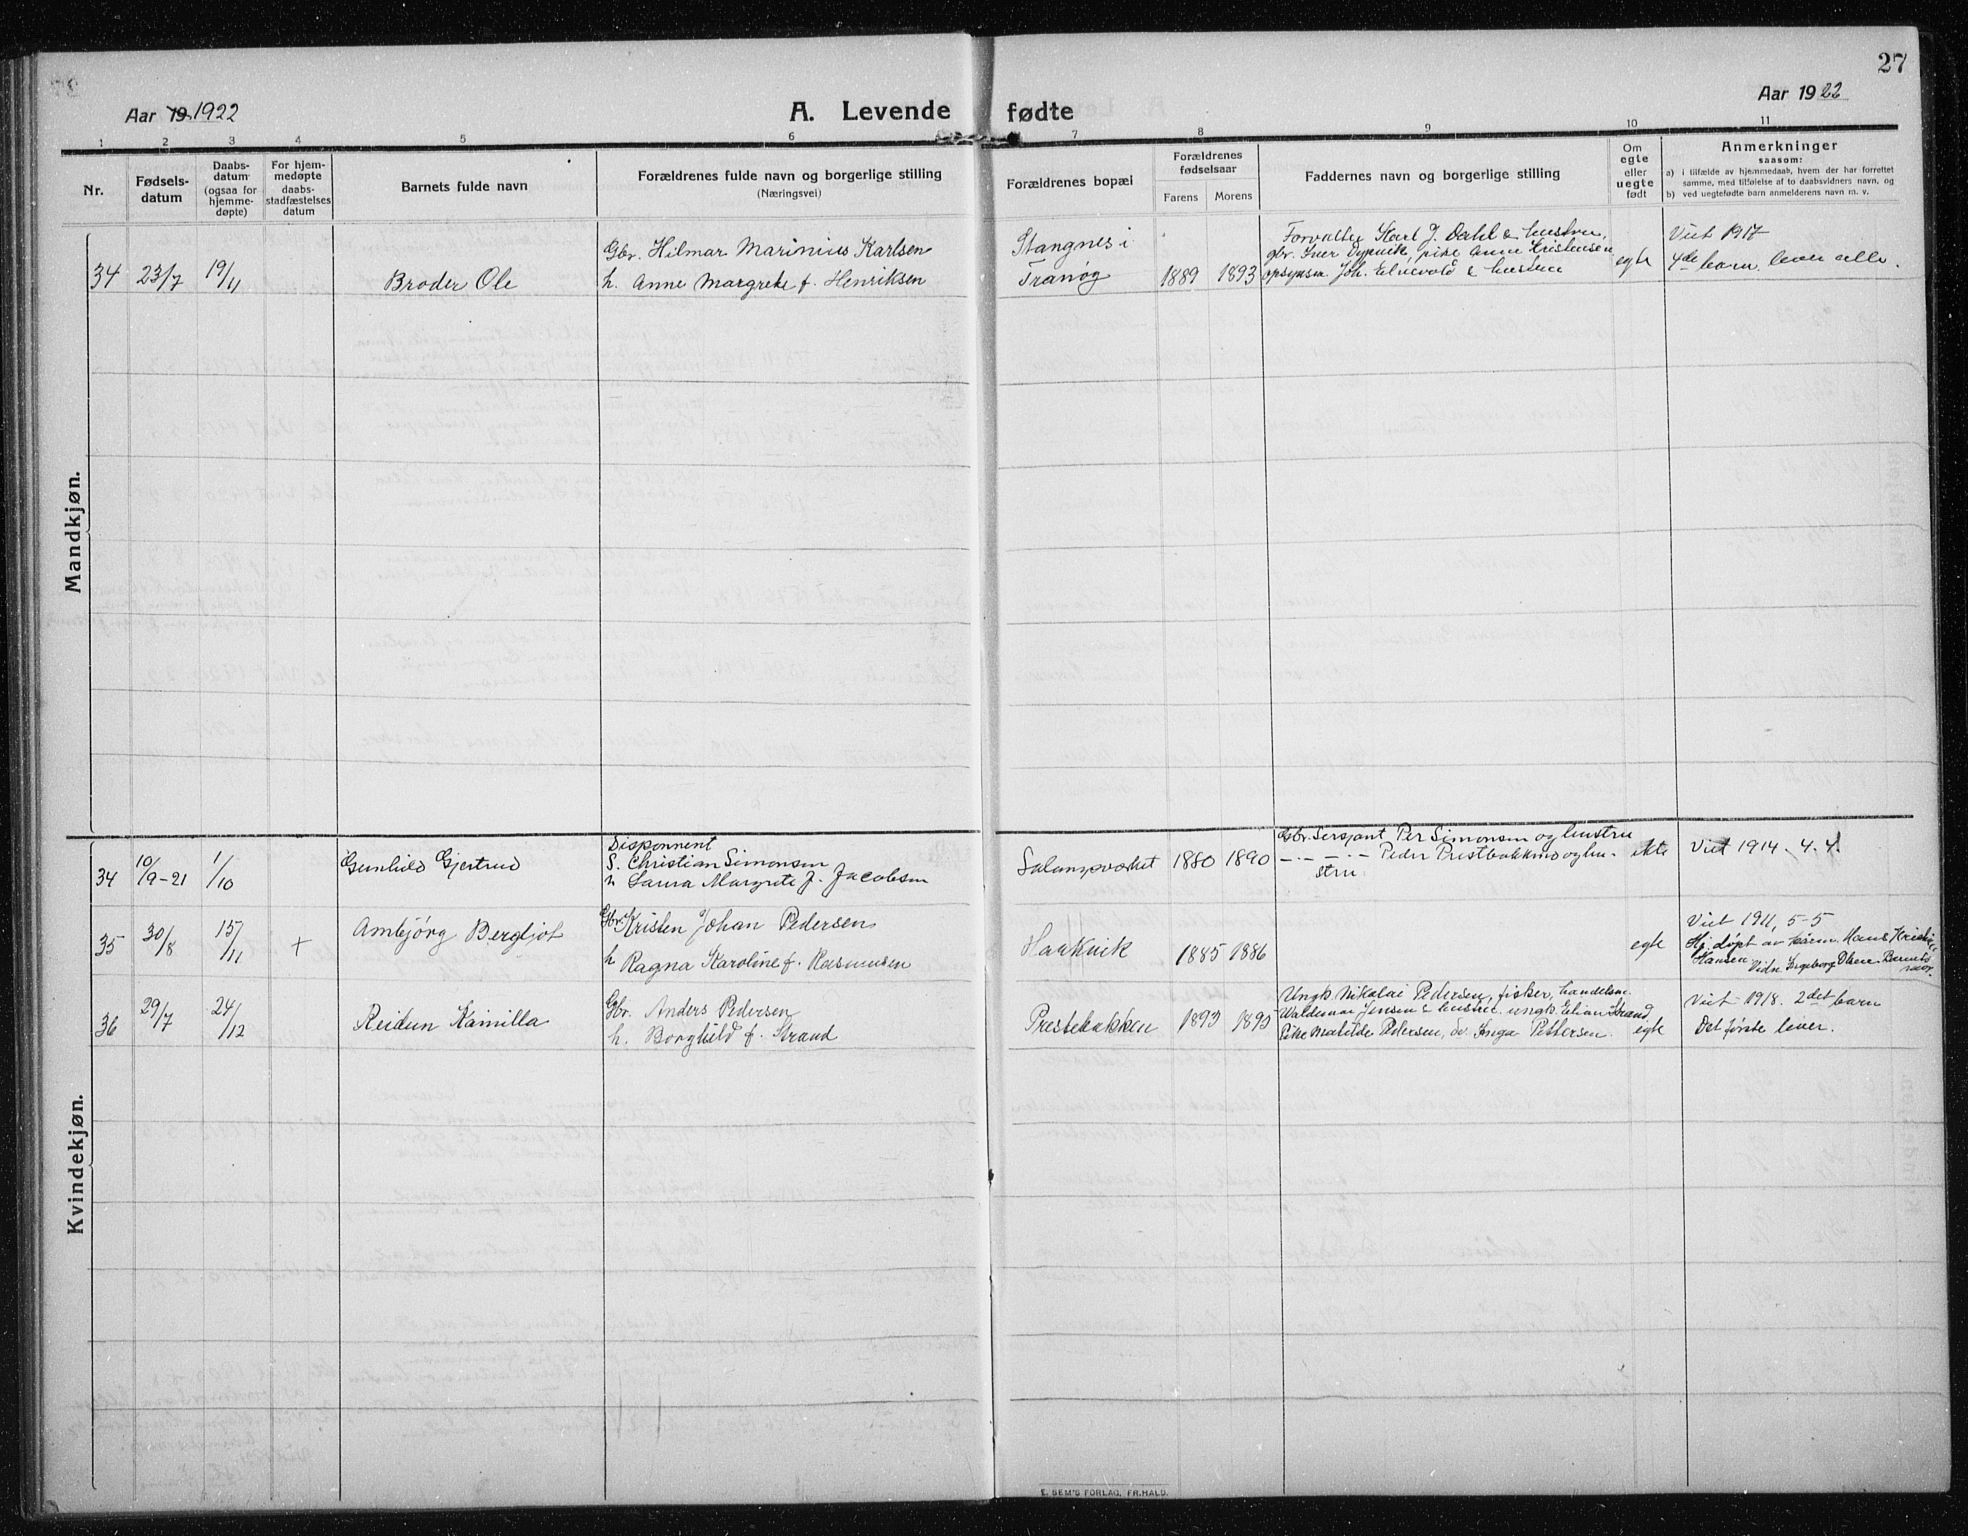 27
Aar 19 1922
A. Levende fødte
Aar 1922
1 2 3 4 5 6 7 8 9 10 11
Nr.
Fødsels-
datum
Daabs-
datum
(ogsaa for
hjemme-
døpte)
For hjem-
medøpte
daabs-
stadfæstelses
datum
Barnets fulde navn
Forældrenes fulde navn og borgerlige stilling
(Næringsvei)
Forældrenes bopæl
Forældrenes
fødselsaar
Farens Morens
Faddernes navn og borgerlige stilling
Om
egte
eller
uegte
født
Anmerkninger
saasom:
a) i tilfælde av hjemmedaab, hvem der har forrettet
samme, med tilføielse af to daabsvidners navn, og
b) ved uegtefødte barn anmelderens navn m. v.
Mandkjøn.
34 23/7 19/11
Broder Ole
Gbr. Hilmar Marinius Karlsen
h. Anne Margrete f. Henriksen
Stangnes i
Tranøy
1889 1893
Forvalter Karl J. Dahl & hustru,
gbr. Iver Dypvik, pike Anna Kristensen
opsynsm. Joh. Elvevold & hustru
egte
Viet 1917
4de barn. lever alle.
Kvindekjøn.
34 10/9-21 1/10
Gunhild Gjertrud
Disponent
S. Christian Simonsen
h Laura Margrete f. Jacobsen
Salangsverket
1880 1890
Gbr. Sersjant Per Simonsen og hustru
-·- -·- Peder Prestbakkmo og hu-
stru
ekte
Viet 1914 - 4. 4.
35 30/8 15/11 +
Ambjørg Bergljot
Gbr. Kristen Johan Pedersen
h Ragna Karoline f. Rasmussen
Haakvik
1885 1886
egte
Viet 1911, 5-5
Hj. døpt av Hans Kristian
Hansen Vidn Ingeborg Olsen
36 29/7 24/12
Reidun Kamilla
Gbr. Anders Pedersen
h. Borghild f. Strand
Prestebakken
1893 1895
Ungk. Nikolai Pedersen, fisker, handelsm.
Waldemar Jensen & hustru. ungk. Elian Strand
Pike Matilde Pedersen, do. Inga Pettersen.
egte
Viet 1918. 2det barn
Det første lever.
E. SEM'S FORLAG, FR.HALD.